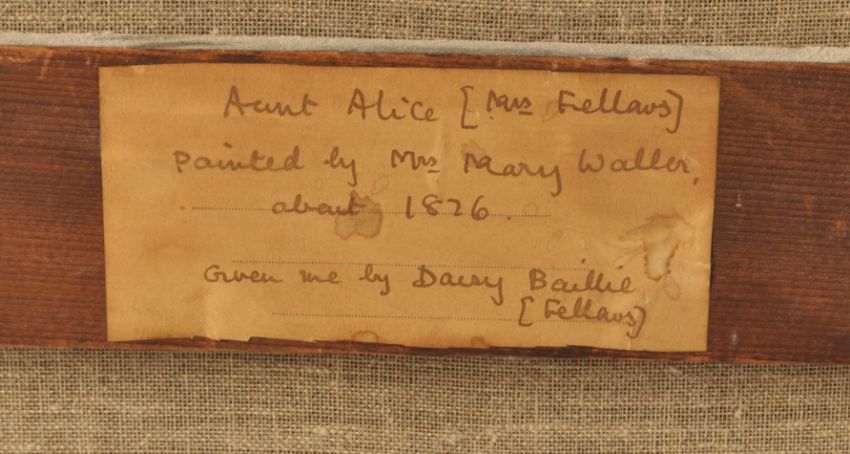 Aunt Alice [Mrs Fellows]
Painted by Mrs Mary Waller,
about 1876.
Given me by Daisy Baillie
[Fellows]